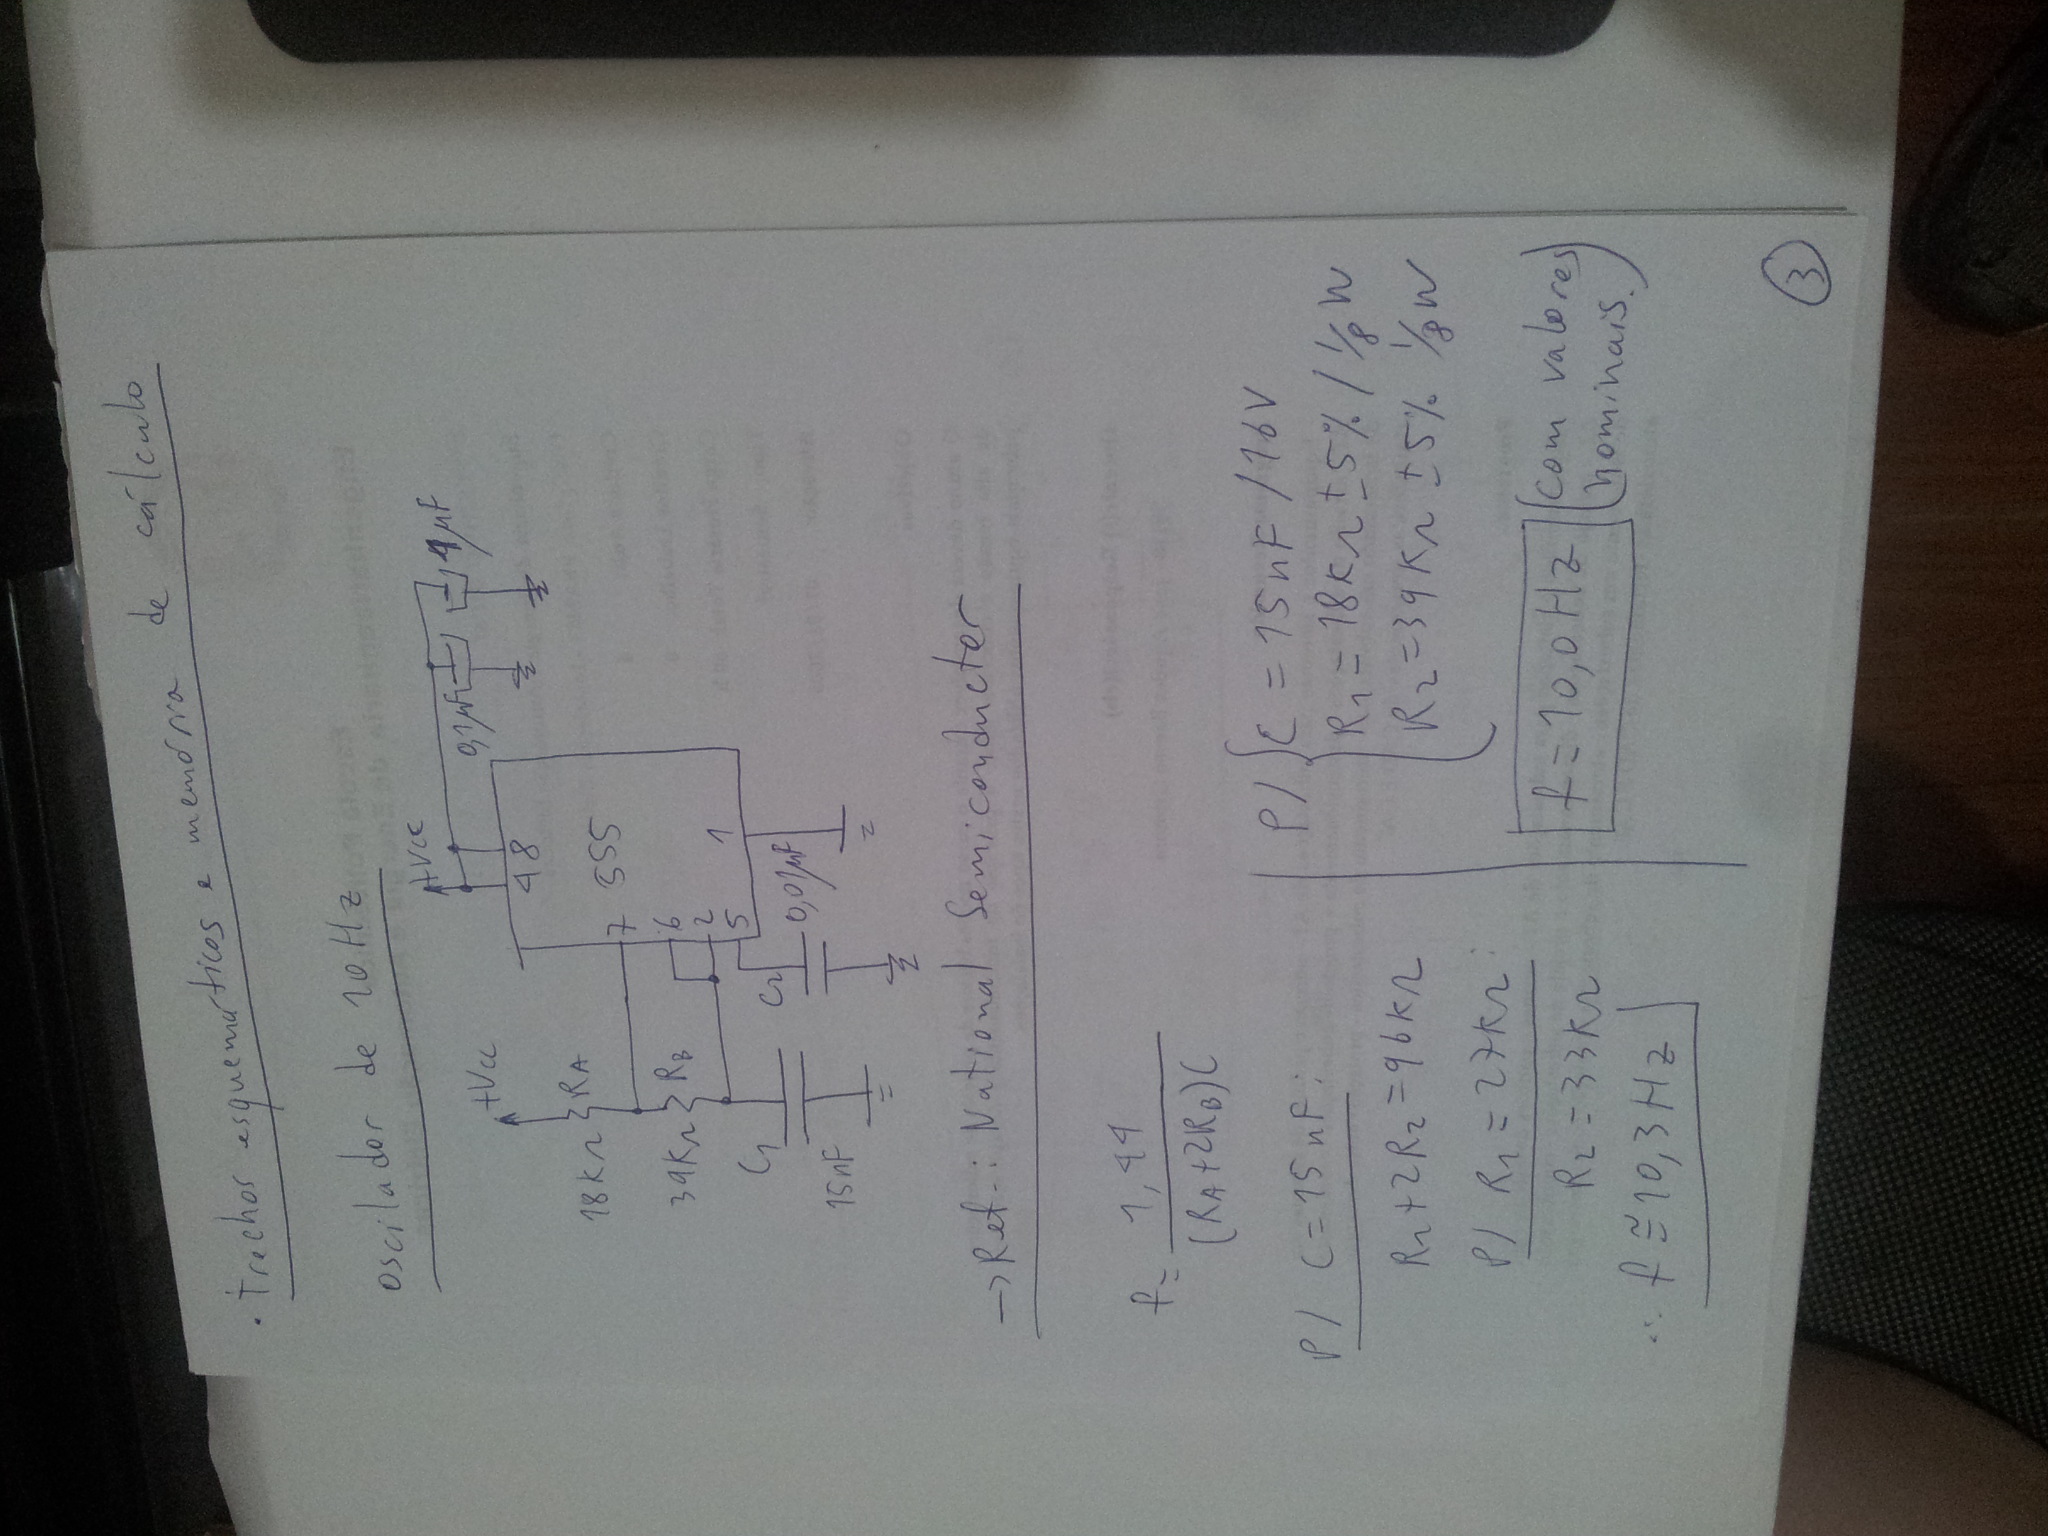 · Trechos esquemáticos e memória de cálculo
oscilador de 10Hz
+Vcc
+Vcc
0,1µF
1µF
48
18KΩ
RA
7
555
39KΩ
RB
6
2
5
1
C1
C2
0,01µF
15nF
→Ref.: National Semiconductor
f=
1,44
(RA+2RB)C
P/ C=15nF:
R1+2R2=96KΩ
P/ R1=27KΩ:
R2=33KΩ
∴ f≅10,3Hz
P/ { C = 15nF/16V
R1=18KΩ ±5% / 1/8 W
R2=39KΩ ±5% 1/8 W
f=10,0Hz (com valores
nominais.)
3